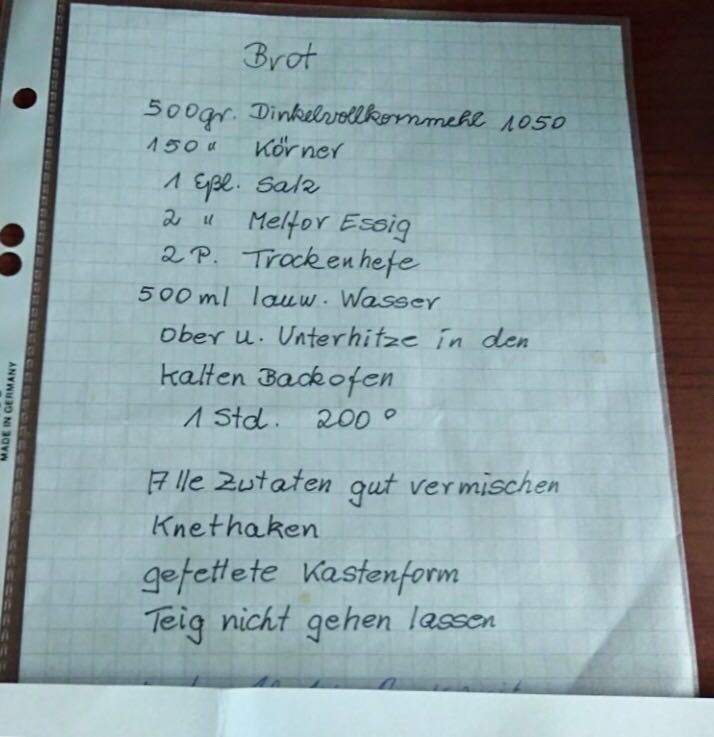 Brot
500gr. Dinkelvollkornmehl 1050
150 " Körner
1 Eßl. Salz
2 " Melfor Essig
2 P. Trockenhefe
500ml lauw. Wasser
Ober u. Unterhitze in den
kalten Backofen
1 Std. 200°
Alle Zutaten gut vermischen
Knethaken
gefettete Kastenform
Teig nicht gehen lassen
MADE IN GERMANY